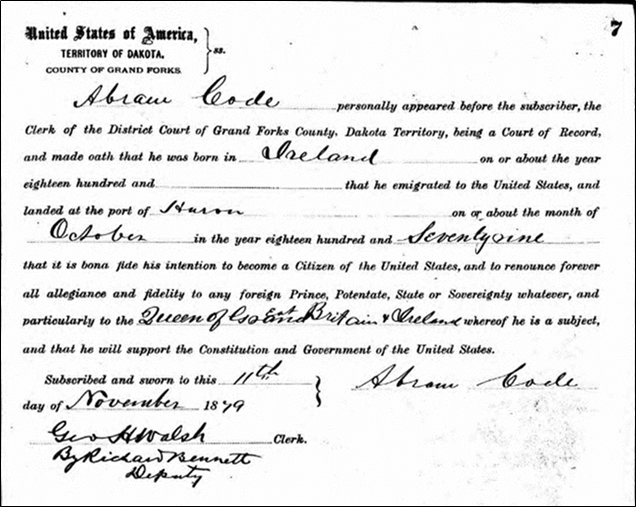 7
United States of America,
TERRITORY OF DAKOTA.
COUNTY OF GRAND FORKS
} ss.
Abram Code personally appeared before the subscriber, the
Clerk of the District Court of Grand Forks County, Dakota Territory, being a Court of Record,
and made oath that he was born in Ireland on or about the year
eighteen hundred and that he emigrated to the United States, and
landed at the port of Huron on or about the month of
October in the year eighteen hundred and Seventy nine
that it is bona fide his intention to become a Citizen of the United States, and to renounce forever
all allegiance and fidelity to any foreign Prince, Potentate, State or Sovereignty whatever, and
particularly to the Queen of Britain & Ireland whereof he is a subject,
and that he will support the Constitution and Government of the United States.
Subscribed and sworn to this 11th } Abram Code
day of November 1879
Geo H Walsh Clerk.
By Richard Bennett
Deputy